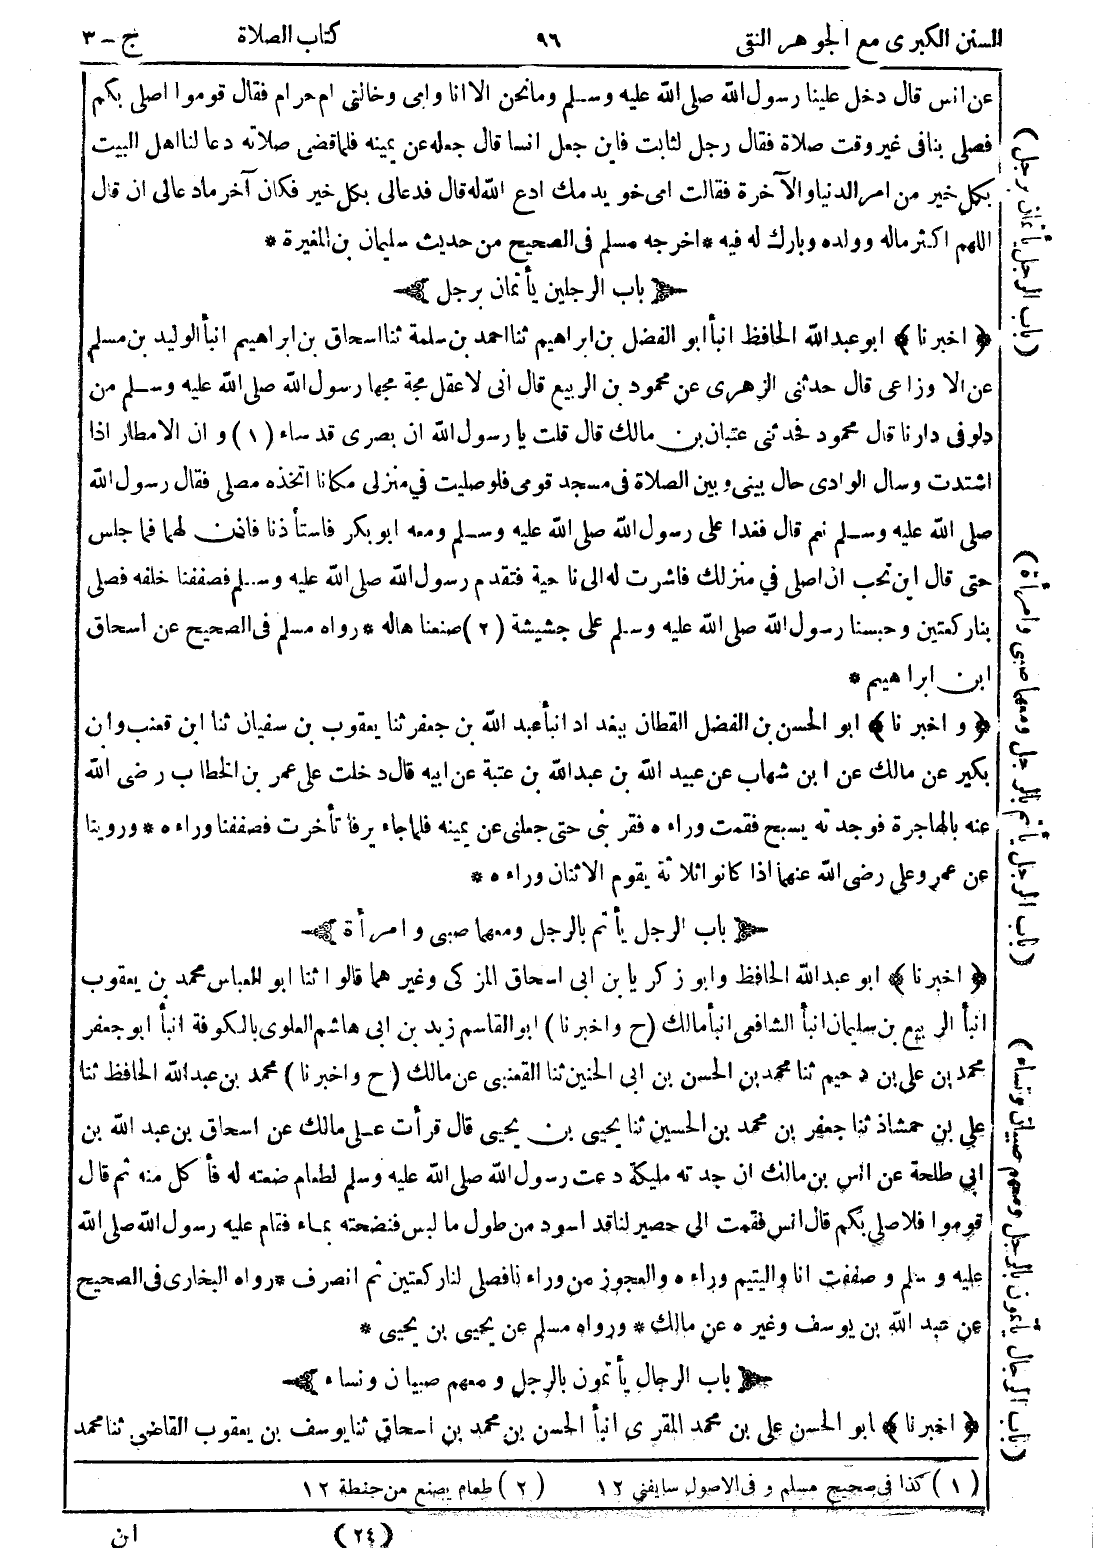 السنن الكبرى مع الجوهر النقى ٩٦ كتاب الصلاة ج - ٣
عن انس قال دخل علينا رسول الله صلى الله عليه وسلم وما نحن الا انا وامى وخالتى ام حرام فقال قوموا اصلى بكم
فصلى بنا فى غير وقت صلاة فقال رجل لثابت فاين جعل انسا قال جعله عن يمينه فلما قضى صلاته دعا لنا اهل البيت
بكل خير من امر الدنيا والآخرة فقالت امى خويدمك ادع الله له قال فدعا لى بكل خير فكان آخر ما دعا لى ان قال
اللهم اكثر ماله وولده وبارك له فيه * اخرجه مسلم فى الصحيح من حديث سليمان بن المغيرة *
باب الرجلين يأتمان برجل
﴿ اخبرنا ﴾ ابو عبد الله الحافظ انبأ ابو الفضل بن ابراهيم ثنا احمد بن سلمة ثنا اسحاق بن ابراهيم انبأ الوليد بن مسلم
عن الاوزاعى قال حدثنى الزهرى عن محمود بن الربيع قال انى لاعقل مجة مجها رسول الله صلى الله عليه وسلم من
دلو فى دارنا قال محمود فحدثنى عتبان بن مالك قال قلت يا رسول الله ان بصرى قد ساء (١) و ان الامطار اذا
اشتدت وسال الوادى حال بينى وبين الصلاة فى مسجد قومى فلو صليت في منزلى مكانا اتخذه مصلى فقال رسول الله
صلى الله عليه وسلم نعم قال فغدا على رسول الله صلى الله عليه وسلم ومعه ابو بكر فاستأذنا فاذن لهما فما جلس
حتى قال اين تحب ان اصلى في منزلك فاشرت له الى ناحية فتقدم رسول الله صلى الله عليه وسلم فصففنا خلفه فصلى
بنا ركعتين وحبسنا رسول الله صلى الله عليه وسلم على جشيشة (٢) صنعنا ها له * رواه مسلم فى الصحيح عن اسحاق
ابن ابراهيم *
﴿ و اخبرنا ﴾ ابو الحسن بن الفضل القطان ببغداد انبأ عبد الله بن جعفر ثنا يعقوب بن سفيان ثنا ابن قعنب وابن
بكير عن مالك عن ابن شهاب عن عبيد الله بن عبد الله بن عتبة عن ابيه قال دخلت على عمر بن الخطاب رضى الله
عنه بالهاجرة فوجدته يسبح فقمت وراءه فقربنى حتى جعلنى عن يمينه فلما جاء يرفا تأخرت فصففنا وراءه * وروينا
عن عمر وعلى رضى الله عنهما اذا كانوا ثلاثة يقوم الاثنان وراءه *
باب الرجل يأتم بالرجل ومعهما صبى و امرأة
﴿ اخبرنا ﴾ ابو عبد الله الحافظ وابو زكريا بن ابى اسحاق المزكى وغيرهما قالوا ثنا ابو العباس محمد بن يعقوب
انبأ الربيع بن سليمان انبأ الشافعى انبأ مالك (ح واخبرنا) ابو القاسم زيد بن ابى هاشم العلوى بالكوفة انبأ ابو جعفر
محمد بن على بن دحيم ثنا محمد بن الحسن بن ابى الحنين ثنا القعنبى عن مالك (ح واخبرنا) محمد بن عبد الله الحافظ ثنا
على بن حمشاذ ثنا جعفر بن محمد بن الحسين ثنا يحيى بن يحيى قال قرأت على مالك عن اسحاق بن عبد الله بن
ابي طلحة عن انس بن مالك ان جدته مليكة دعت رسول الله صلى الله عليه وسلم لطعام صنعته له فأكل منه ثم قال
قوموا فلاصلى بكم قال انس فقمت الى حصير لنا قد اسود من طول ما لبس فنضحته بماء فقام عليه رسول الله صلى الله
عليه وسلم و صففت انا واليتيم وراءه والعجوز من ورائنا فصلى لنا ركعتين ثم انصرف * رواه البخارى فى الصحيح
عن عبد الله بن يوسف وغيره عن مالك * ورواه مسلم عن يحيى بن يحيى *
باب الرجال يأتمون بالرجل و معهم صبيان ونساء
﴿ اخبرنا ﴾ ابو الحسن على بن محمد المقرى انبأ الحسن بن محمد بن اسحاق ثنا يوسف بن يعقوب القاضى ثنا محمد
(١) كذا فى صحيح مسلم و فى الاصول سايفنى ١٢ (٢) طعام يصنع من حنطة ١٢
(٢٤) ابن
(باب الرجل يأتمان برجل)
(باب الرجل يأتم بالرجل ومعهما صبى وامرأة)
(باب الرجال يأتمون بالرجل ومعهم صبيان ونساء)